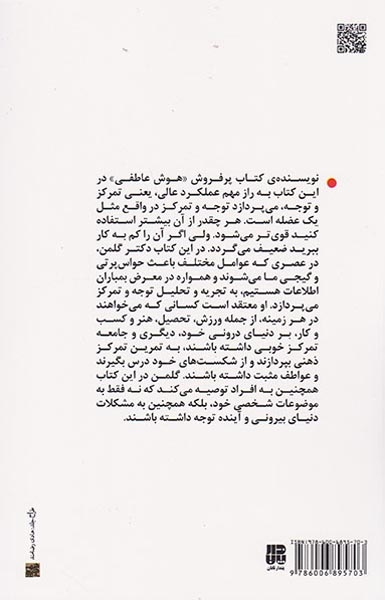 نویسنده‌ی کتاب پرفروش «هوش عاطفی» در
این کتاب به راز مهم عملکرد عالی، یعنی تمرکز
و توجه، می‌پردازد توجه و تمرکز در واقع مثل
یک عضله است. هر چقدر از آن بیشتر استفاده
کنید قوی‌تر می‌شود. ولی اگر آن را کم به کار
ببرید ضعیف می‌گردد. در این کتاب دکتر گلمن،
در عصری که عوامل مختلف باعث حواس‌پرتی
و گیجی ما می‌شوند و همواره در معرض بمباران
اطلاعات هستیم، به تجزیه و تحلیل توجه و تمرکز
می‌پردازد. او معتقد است کسانی که می‌خواهند
در هر زمینه، از جمله ورزش، تحصیل، هنر و کسب
و کار، بر دنیای درونی خود، دیگری و جامعه
تمرکز خوبی داشته باشند، به تمرین تمرکز
ذهنی بپردازند و از شکست‌های خود درس بگیرند
و عواطف مثبت داشته باشند. گلمن در این کتاب
همچنین به افراد توصیه می‌کند که نه فقط به
موضوعات شخصی خود، بلکه همچنین به مشکلات
دنیای بیرونی و آینده توجه داشته باشند.
طراح جلد: هادی رضامند
ISBN: 978-600-6895-70-3
9 786006 895703